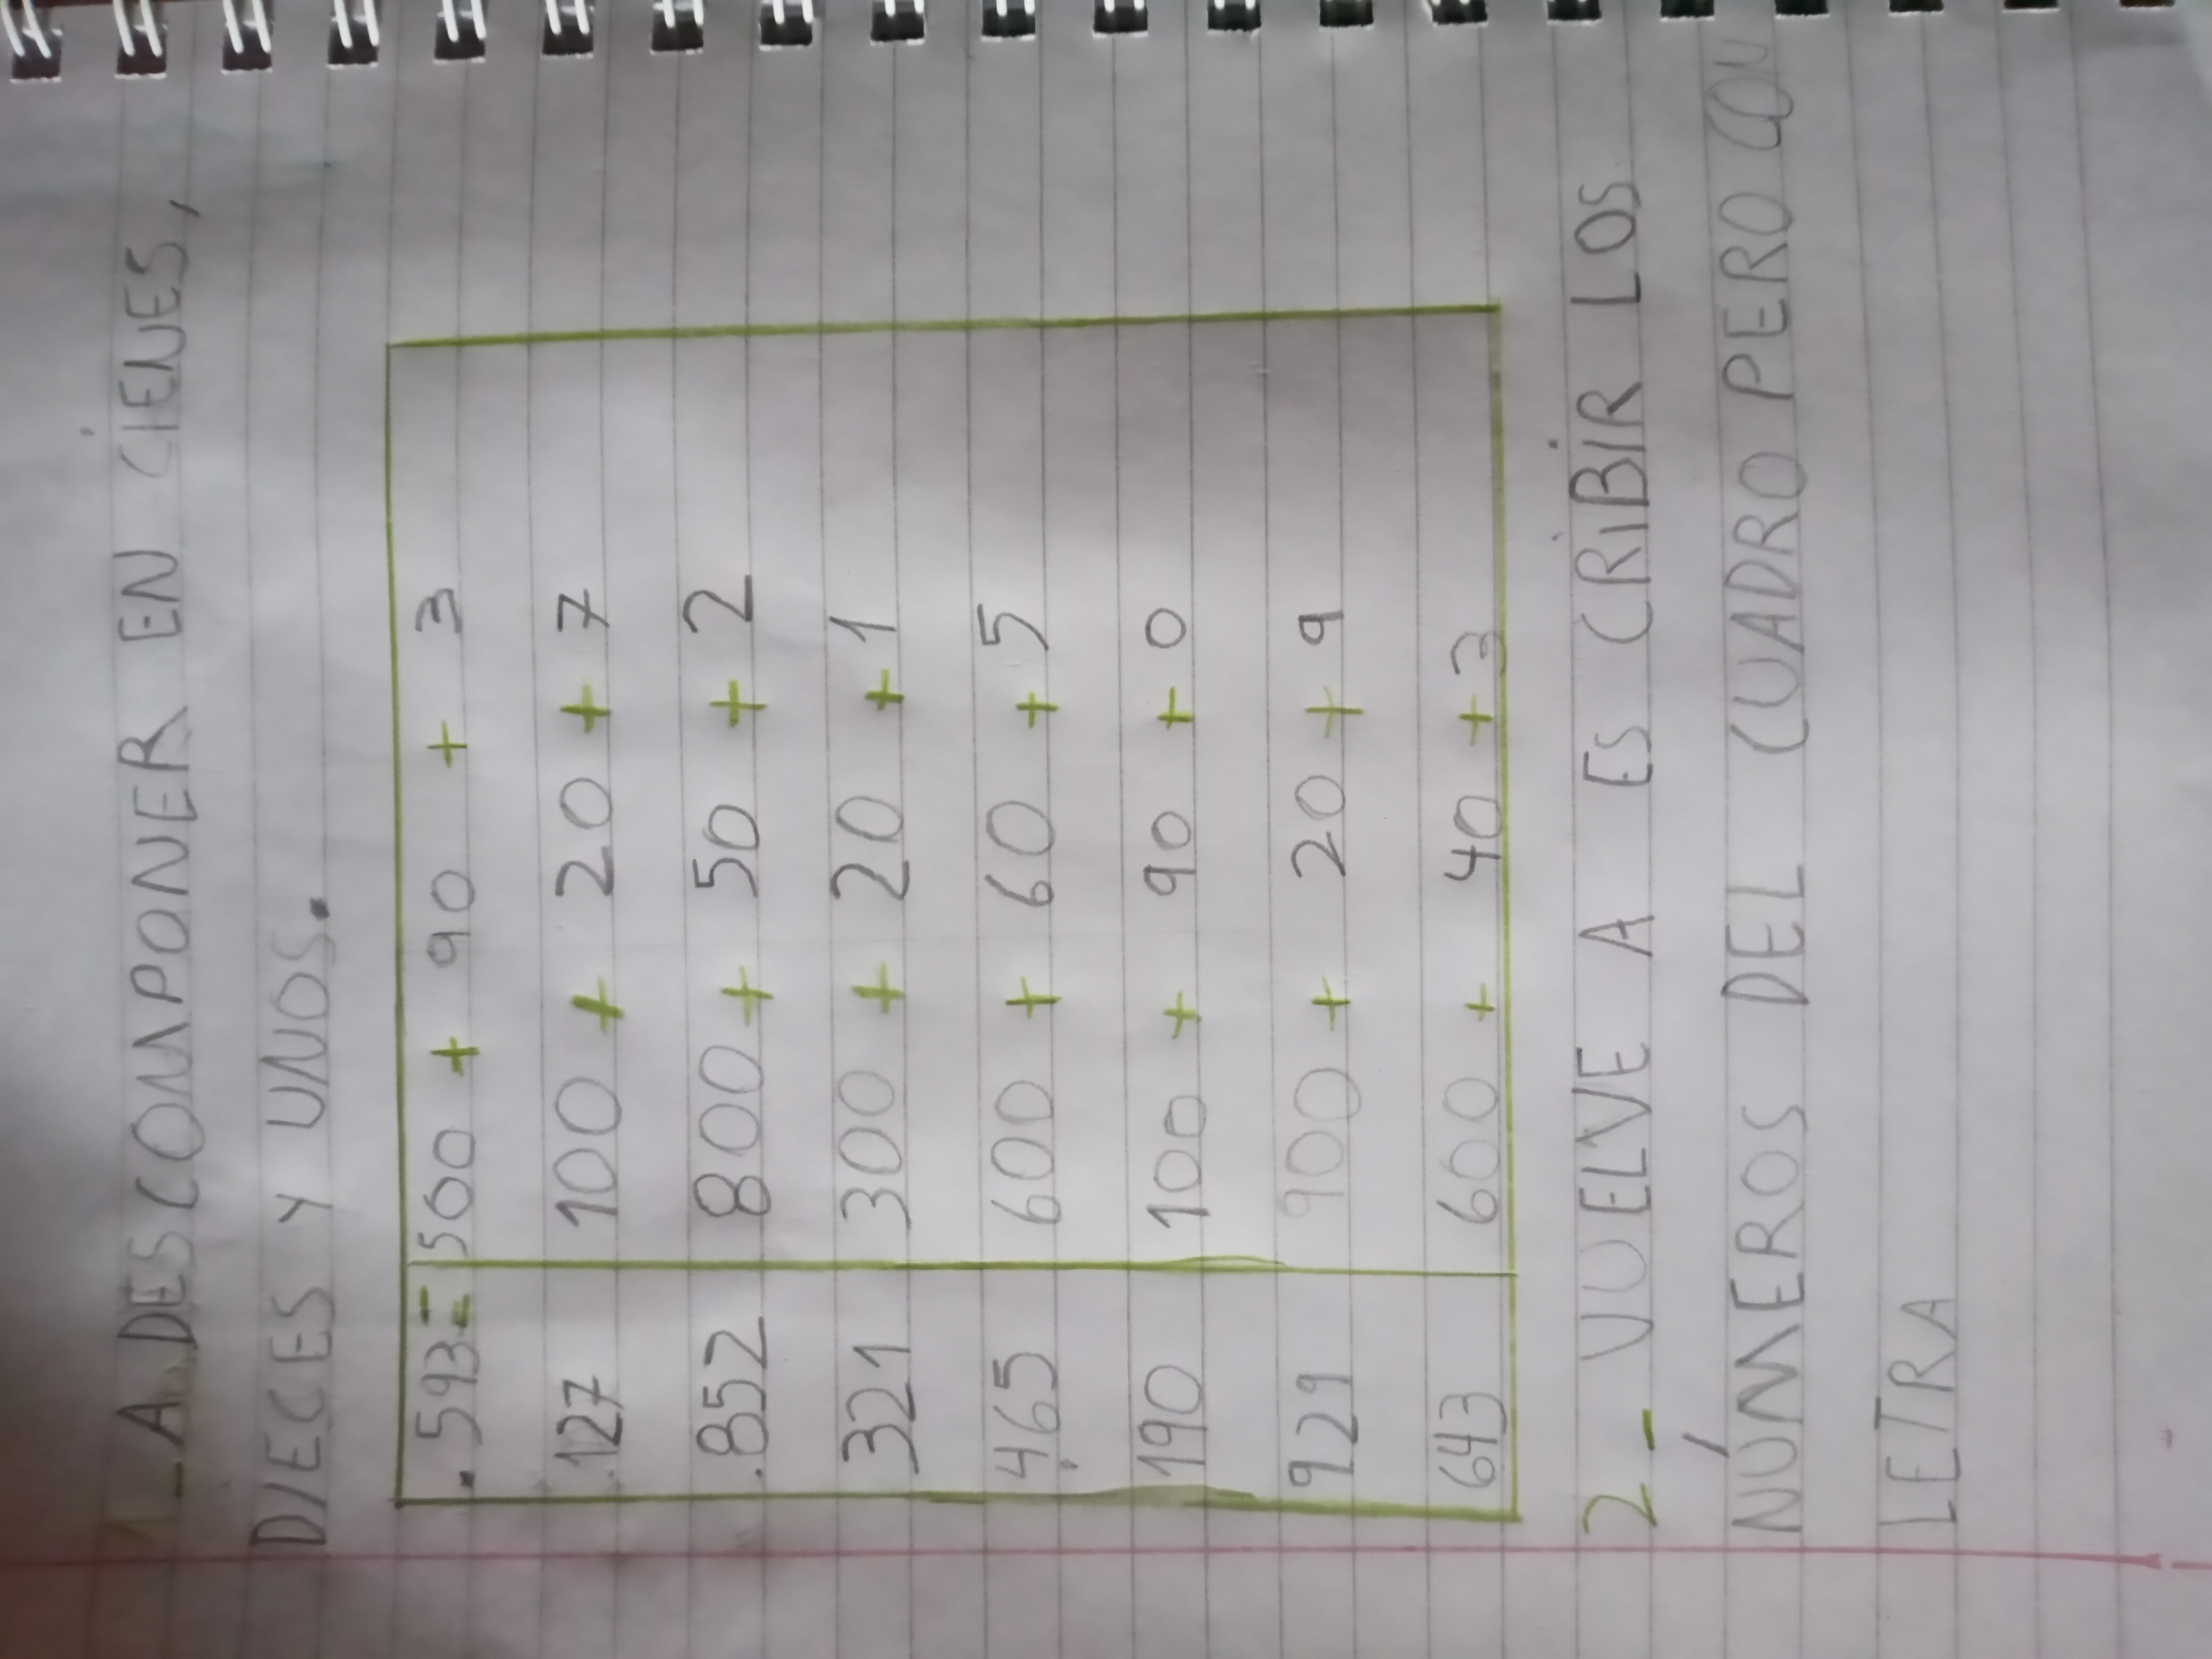 1_ A DESCOMPONER EN CIENES,
DIECES Y UNOS.
.593= 500 + 90 + 3
.127 100 + 20 + 7
.852 800 + 50 + 2
321 300 + 20 + 1
465 600 + 60 + 5
190 100 + 90 + 0
929 900 + 20 + 9
643 600 + 40 + 3
2_ VUELVE A ES CRIBIR LOS
NÚMEROS DEL CUADRO PERO CON
LETRA